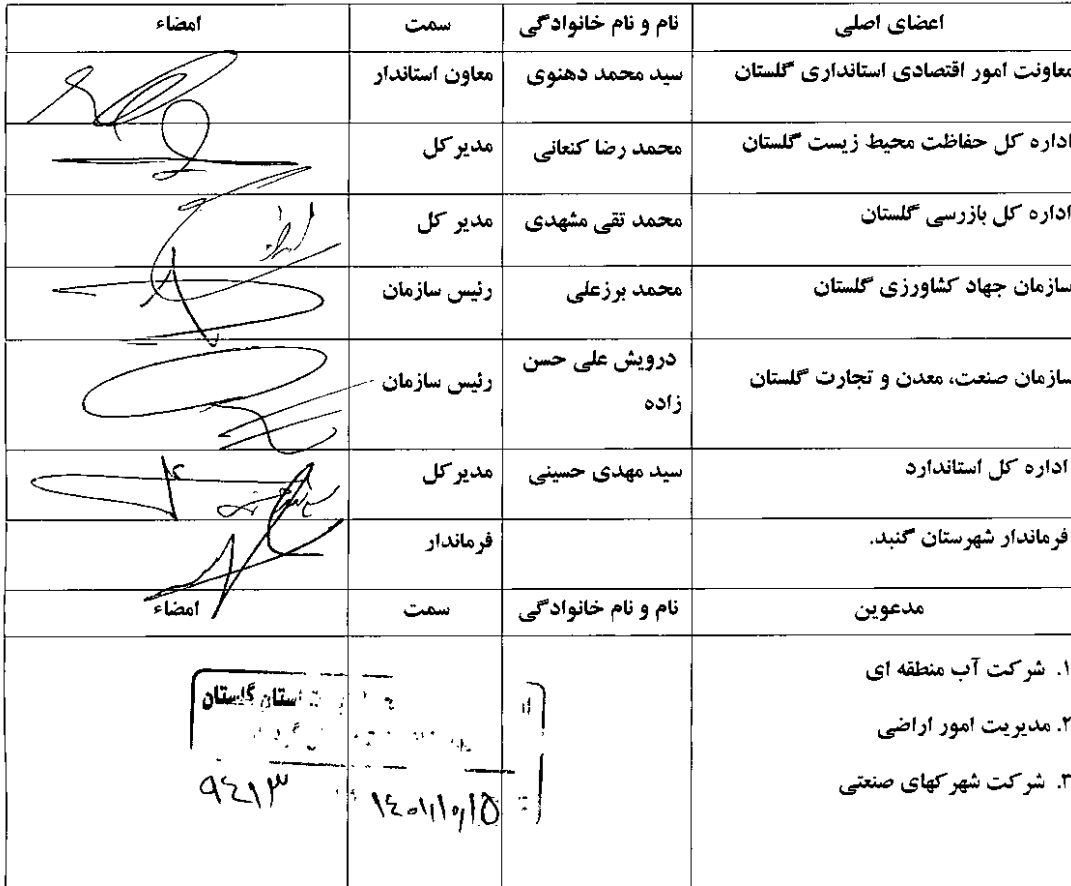 اعضای اصلی نام و نام خانوادگی سمت امضاء
معاونت امور اقتصادی استانداری گلستان سید محمد دهنوی معاون استاندار
اداره کل حفاظت محیط زیست گلستان محمد رضا کنعانی مدیر کل
اداره کل بازرسی گلستان محمد تقی مشهدی مدیر کل
سازمان جهاد کشاورزی گلستان محمد برزعلی رئیس سازمان
سازمان صنعت، معدن و تجارت گلستان درویش علی حسن رئیس سازمان
زاده
اداره کل استاندارد سید مهدی حسینی مدیر کل
فرماندار شهرستان گنبد. فرماندار
مدعوین نام و نام خانوادگی سمت امضاء
۱. شرکت آب منطقه ای
۲. مدیریت امور اراضی
۳. شرکت شهرکهای صنعتی
استان گلستان
۹۴۱۳
۱۴۰۱/۱۰/۱۵